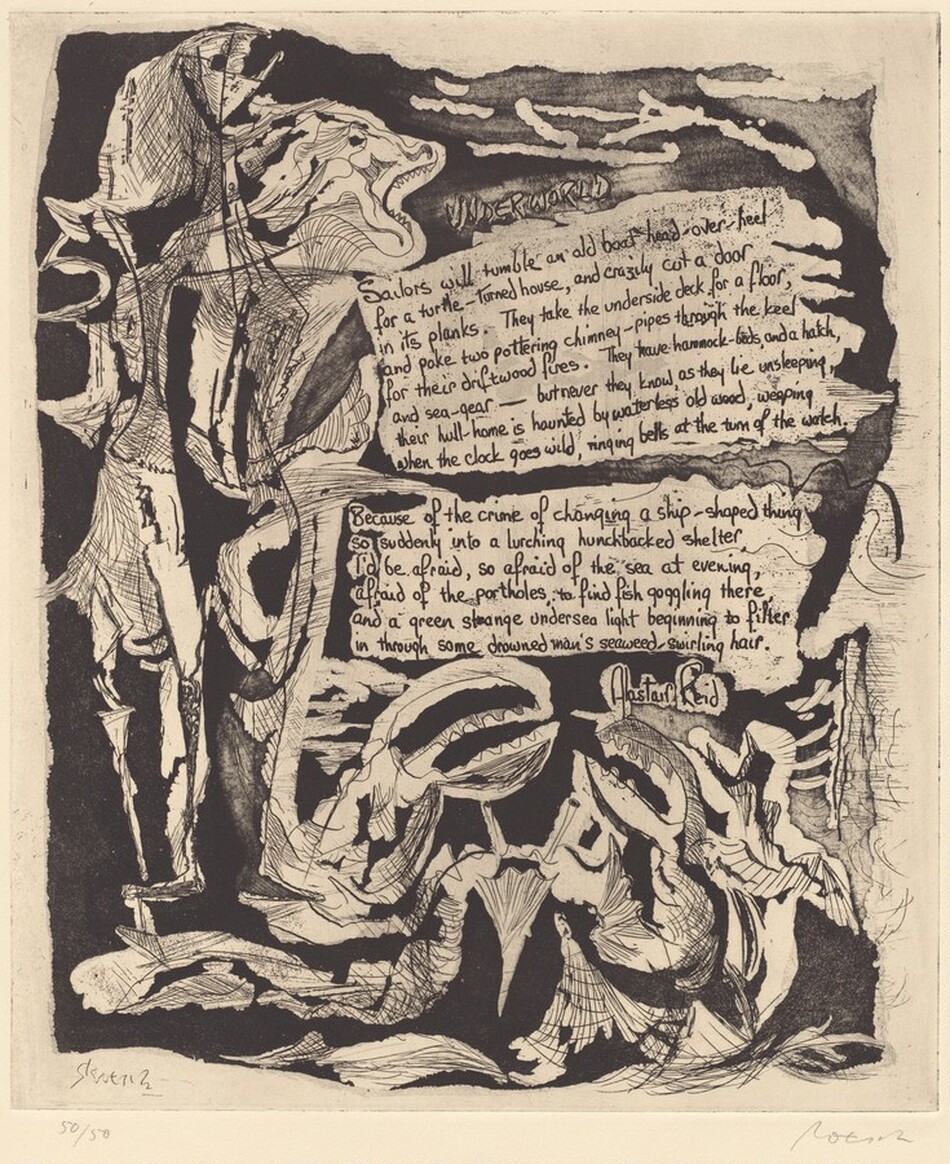 UNDERWORLD
Sailors will tumble an old boat head-over-heel
for a turtle-turned house, and crazily cut a door
in its planks. They take the underside deck for a floor,
and poke two pottering chimney-pipes through the keel
for their driftwood fires. They have hammock-beds, and a hatch,
and sea-gear — but never they know, as they lie unsleeping,
their hull-home is haunted by waterless old wood, weeping
when the clock goes wild, ringing bells at the turn of the watch.
Because of the crime of changing a ship-shaped thing
so suddenly into a lurching hunchbacked shelter,
I'd be afraid, so afraid of the sea at evening,
afraid of the portholes, to find fish goggling there,
and a green strange undersea light beginning to filter
in through some drowned man's seaweed-swirling hair.
Alastair Reid
50/50